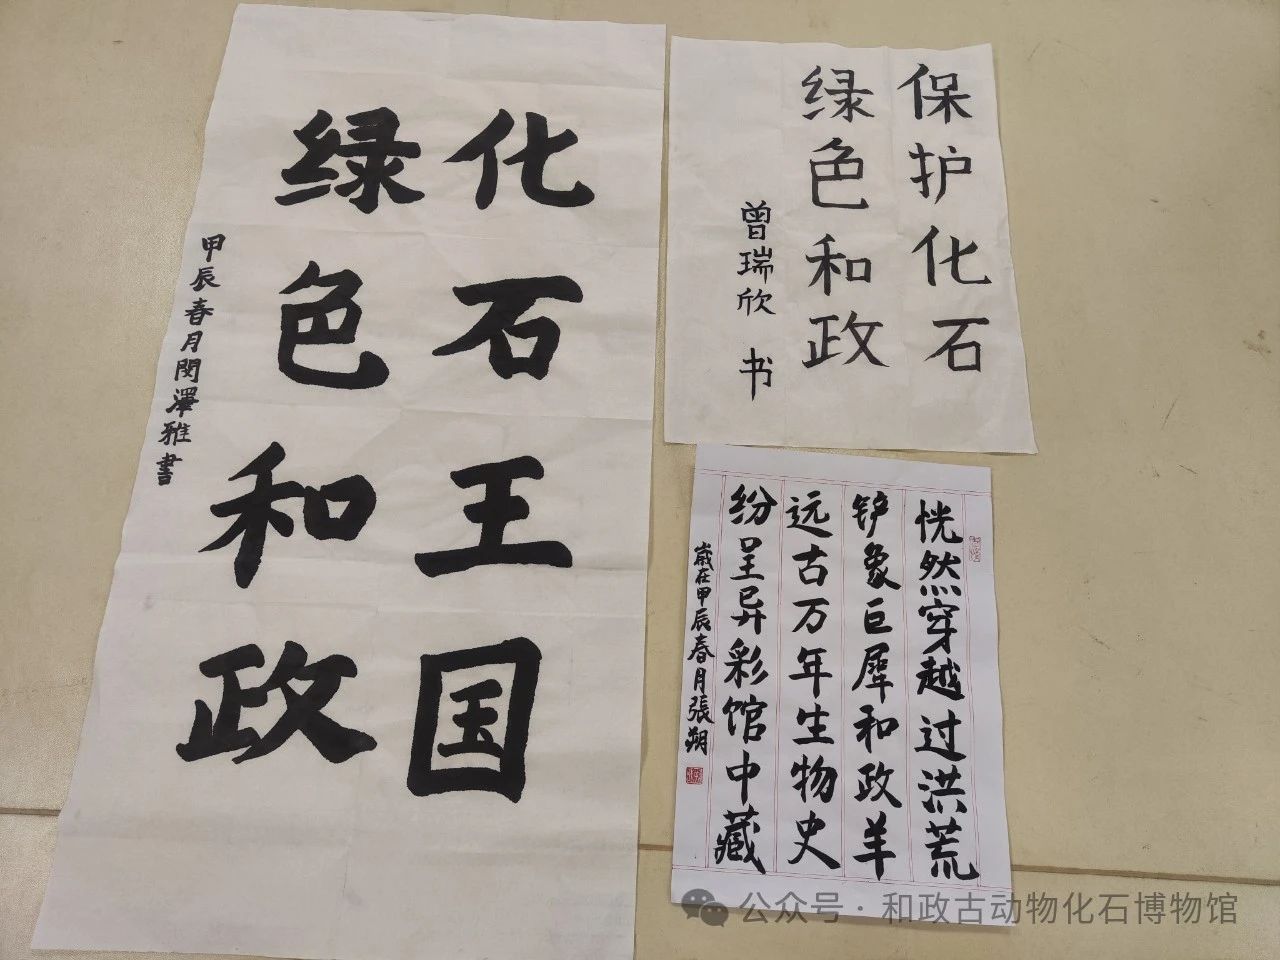 化石王国
绿色和政
甲辰春月閔澤雅書
保护化石
绿色和政
曾瑞欣 书
恍然穿越过洪荒
铲象巨犀和政羊
远古万年生物史
纷呈异彩馆中藏
歲在甲辰春月張翙
公众号·和政古动物化石博物馆